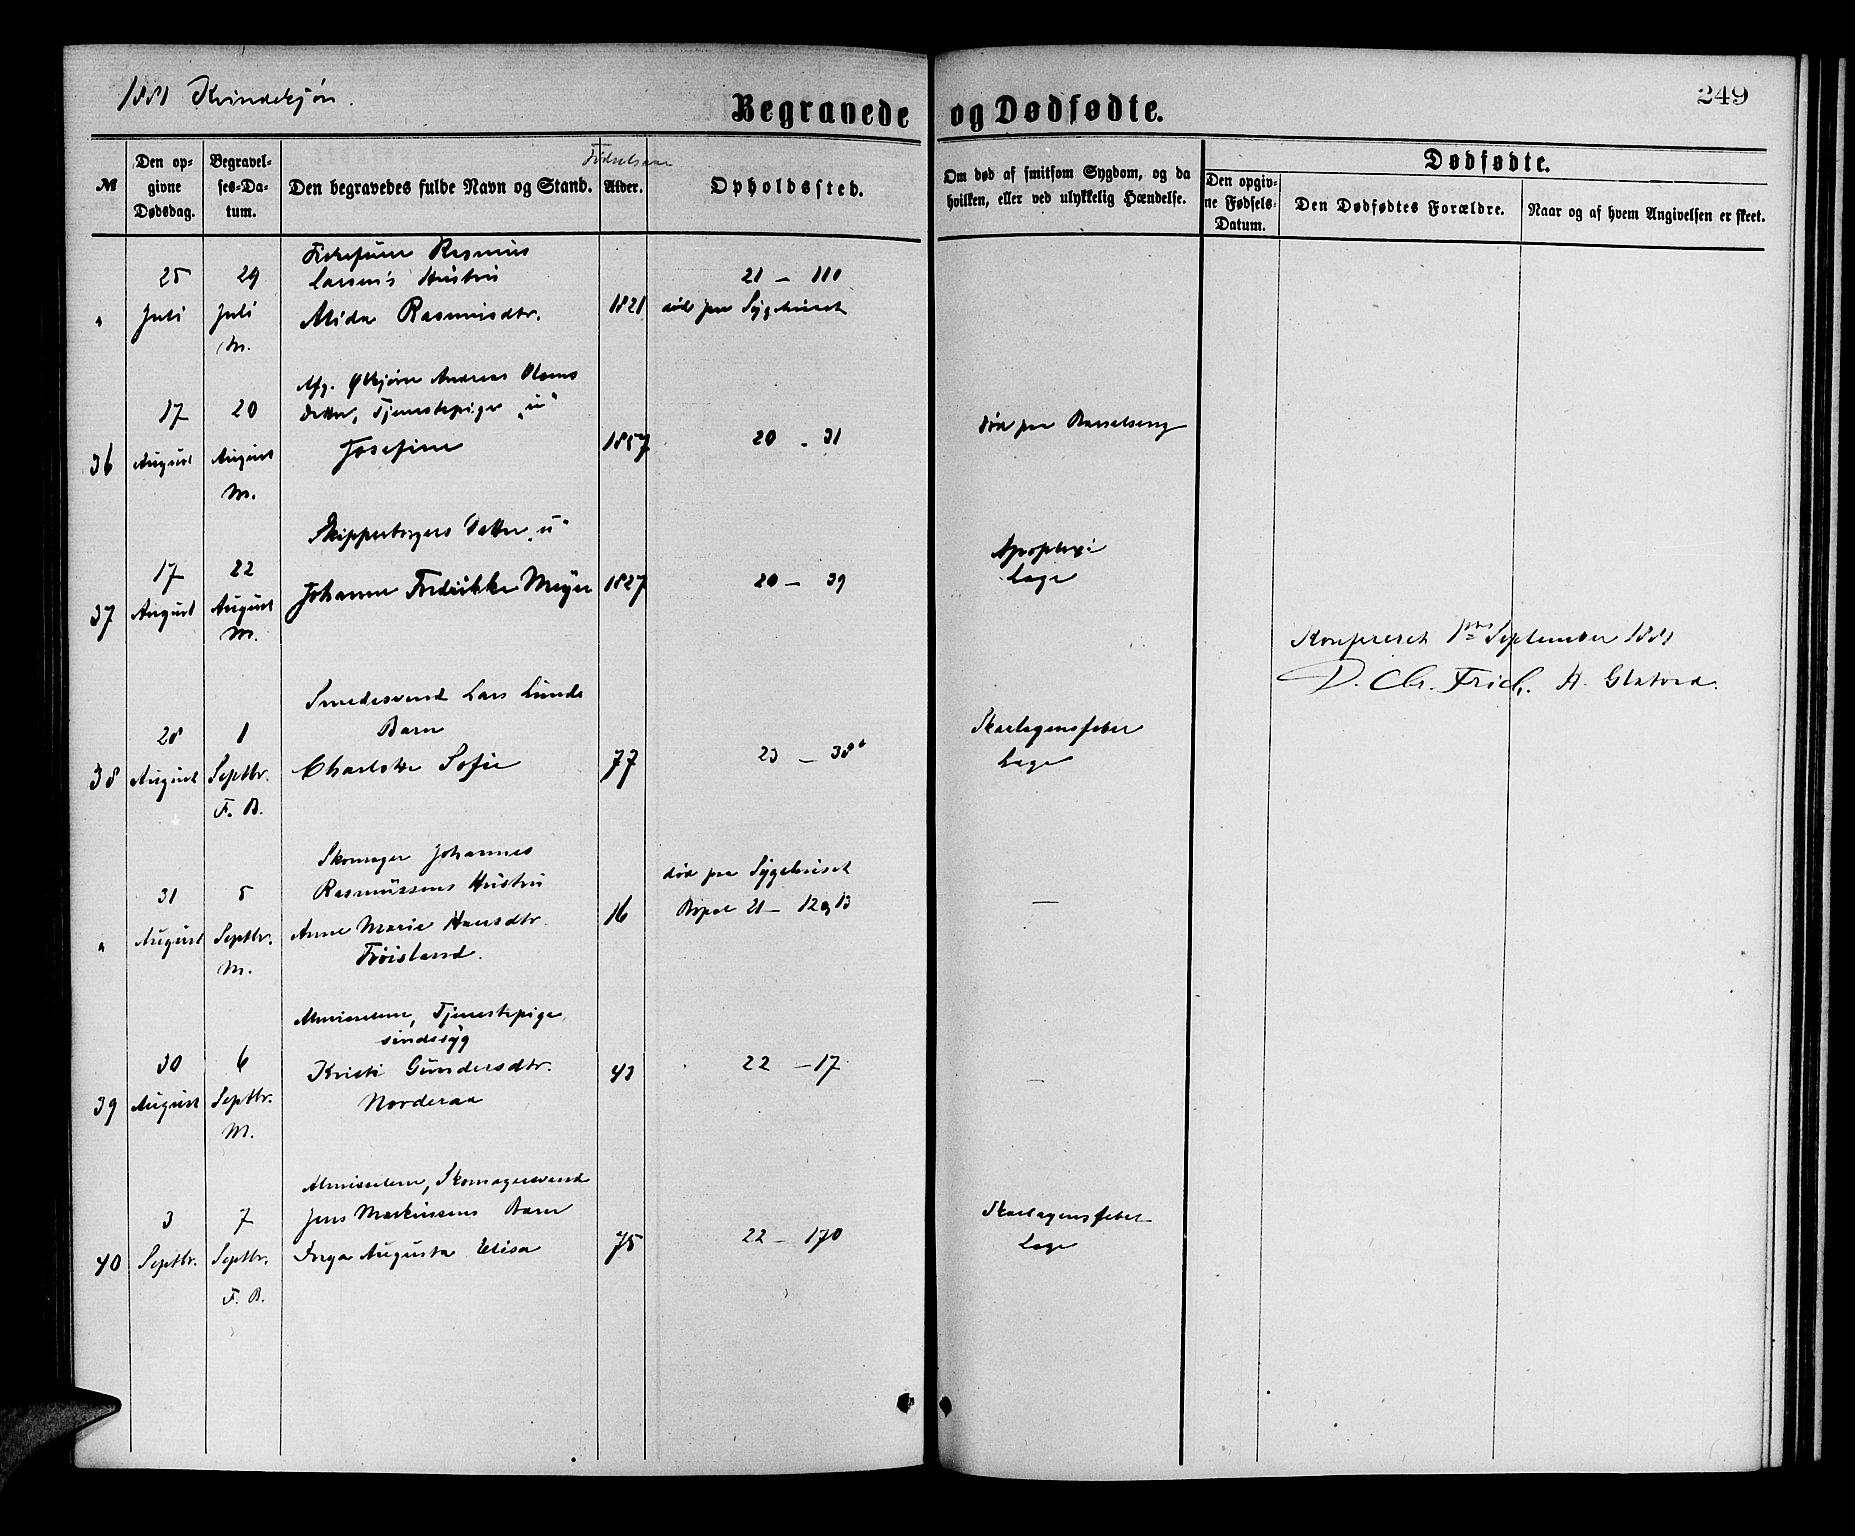 1881 Kvindekjøn.
Begravede og Dødfødte.
249
№
Den op-
givne
Dødsdag.
Begravel-
ses-Da-
tum.
Den begravedes fulde Navn og Stand.
Fødselsaar
Alder.
Opholdssted.
Om død af smitsom Sygdom, og da
hvilken, eller ved ulykkelig Hændelse.
Dødfødte.
Den opgiv-
ne Fødsels-
Datum.
Den Dødfødtes Forældre.
Naar og af hvem Angivelsen er skeet.
"
25
Juli
29
Juli
M.
Rasmus
Larsen's Hustru
Alida Rasmusdtr.
1821
21 - 110
død paa Sygehuset
36
17
August
20
August
M.
Afg. Andreas Olsens
Datter, Tjenestepige "u"
Josefine
1857
20 - 31
død paa Barselseng
37
17
August
22
August
M.
Skipperborgers Datter "u"
Johanne Fredrikke Meyer
1827
20 - 39
Apoplexi
Læge
Konfereret 1ste September 1881
D. Chr. Frich. A.
38
28
August
1
Septbr.
F. B.
Smedesvend Lars Lunds
Barn
Charlotte Sofie
77
23 - 38b
Skarlagensfeber
Læge
"
31
August
5
Septbr.
M.
Skomager Johannes
Rasmussens Hustru
Anne Marie Hansdtr.
Frøisland.
16
død paa Sygehuset
Bopæl 21 - 12 og 13
—
39
30
August
6
Septbr.
M.
Almisselem, Tjenestepige,
sindssyg
Kristi Gundersdtr.
Norderaa
43
22 - 17
—
40
3
Septbr.
7
Septbr.
F. B.
Almisselem, Skomagersvend
Jens Markussens Barn
Inga Augusta Elisa
75
22 - 170
Skarlagensfeber
Læge